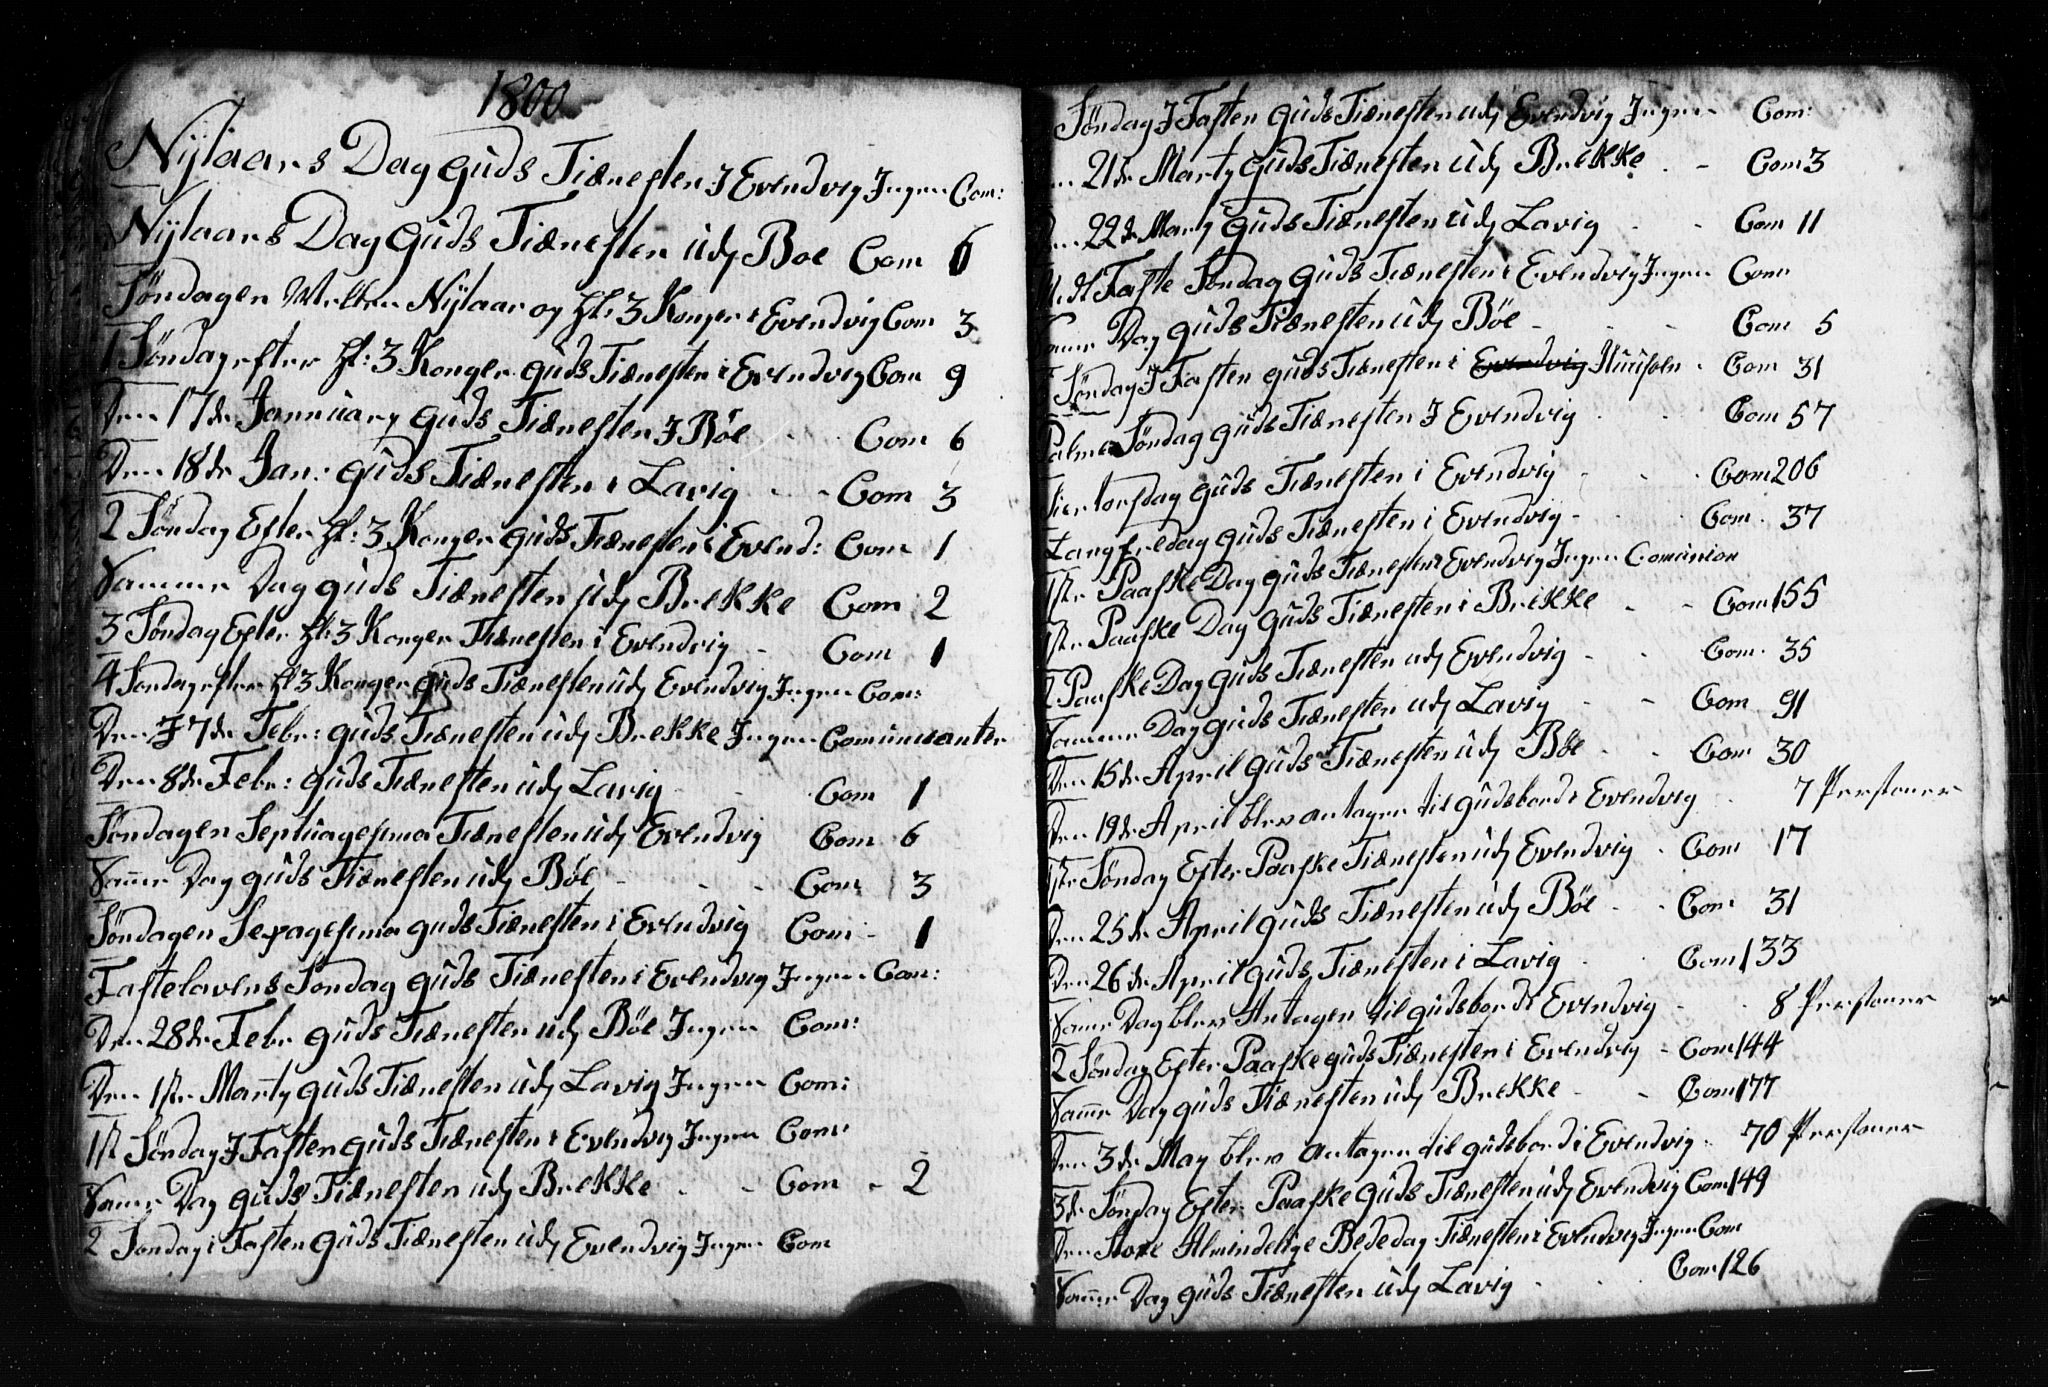 1800
Nijtaars Dag Guds Tiænesten J Evendvig Jngen Com:
Nijtaars Dag Guds Tiænesten udj Boe Com 6
Søndagen Mellem Nijtaar og hl: 3 Konger i Evendvig Com 3
1 Søndag efter hl: 3 Konger Guds Tiænesten i Evendvig Com 9
Den 17de Jannuary Guds Tiænesten J Böe Com 6
Den 18de Jan: Guds Tiænesten i Lavig Com 3
2 Søndag Efter hl: 3 Konger Guds Tiænesten i Evend: Com 1
Samme Dag Guds Tiænesten udj Brekke Com 2
3 Søndag Efter hl: 3 Konger Tiænesten i Evendvig Com 1
4 Søndag efter hl 3 Konger Guds Tiænesten udj Evendvig Jngen Com:
Den 7de Febr: Guds Tiænesten udj Brekke Jngen Comunicanter
Den 8de Febr: Guds Tiænesten udj Lavig Com 1
Søndagen Septuagesima Tiænesten udj Evendvig Com 6
Samme Dag Guds Tiænesten udj Böe Com 3
Søndagen Sexagesima Guds Tiænesten i Evendvig Com 1
Fastelavens Søndag Guds Tiænesten i Evendvig Jngen Com:
Den 28de Febr Guds Tiænesten udj Böe Jngen Com:
Den 1ste Marty Guds Tiænesten udj Lavig Jngen Com:
1st Søndag J Fasten Guds Tiænesten i Evendvig Jngen Com:
Samme Dag Guds Tiænesten udj Brekke Com 2
2 Søndag i Fasten Guds Tiænesten udj Evendvig Jngen Com
Søndag J Fasten Guds Tiænesten udj Evendvig Jngen Com:
21de Marty Guds Tiænesten udj Brekke Com 3
22de Marty Guds Tiænesten udj Lavig Com 11
Midt Faste Søndag Guds Tiænesten i Evendvig Jngen Com
Samme Dag Guds Tiænesten udj Böe Com 5
Søndag J Fasten Guds Tiænesten i Evendvig Com 31
Palme Søndag Guds Tiænesten J Evendvig Com 57
Skiertorsdag Guds Tiænesten i Evendvig Com 206
Langfredag Guds Tiænesten i Evendvig Com 37
1ste Paaske Dag Guds Tiænesten i Evendvig Jngen Comunion
1ste Paaske Dag Guds Tiænesten i Brekke Com 155
2 Paaske Dag Guds Tiænesten udj Evendvig Com 35
Samme Dag Guds Tiænesten udj Lavig Com 91
Den 15de April Guds Tiænesten udj Böe Com 30
Den 19de April blev antagen til Gudsbord i Evendvig 7 Personer
1ste Søndag Efter Paaske Tiænesten udj Evendvig Com 17
Den 25de April Guds Tiænesten udj Böe Com 31
Den 26de April Guds Tiænesten i Lavig Com 133
Samme Dag blev Antagen til Gudsbord i Evendvig 8 Personer
2 Søndag Efter Paaske Guds Tiænesten i Evendvig Com 144
Samme Dag Guds Tiænesten udj Brekke Com 177
Den 3de May blev antagen til Gudsbord i Evendvig 70 Personer
3de Søndag Efter Paaske Guds Tiænesten udj Evendvig Com 149
Den Store Almindelige Bededag Tiænesten i Evendvig Jngen Com
Samme Dag Guds Tiænesten udj Lavig Com 126